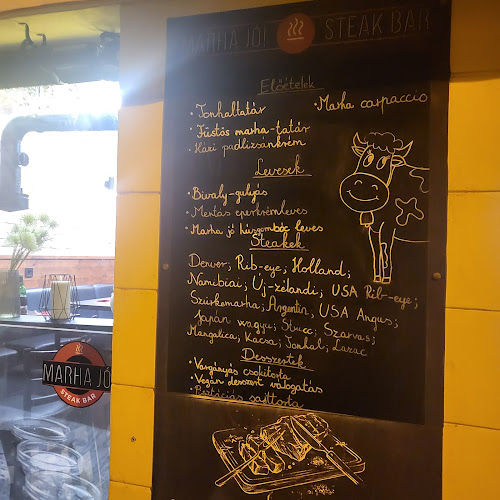 MARHA JÓ! STEAK BAR
Előételek
• Tonhaltatár
• Marha carpaccio
• Füstös marha-tatár
• Házi padlizsánkrém
Levesek
• Bivaly-gulyás
• Mentás eperkrémleves
• Marha jó húsgombóc leves
Steakek
Denver; Rib-eye; Holland;
Namibiai; Új-zélandi; USA Rib-eye;
Szürkemarha; Argentin; USA Angus;
Japán wagyu; Strucc; Szarvas;
Mangalica; Kacsa; Tonhal; Lazac
Desszertek
• Vargányás csokitorta
• Vegán desszert válogatás
• sajttorta
MARHA JÓ
STEAK BAR